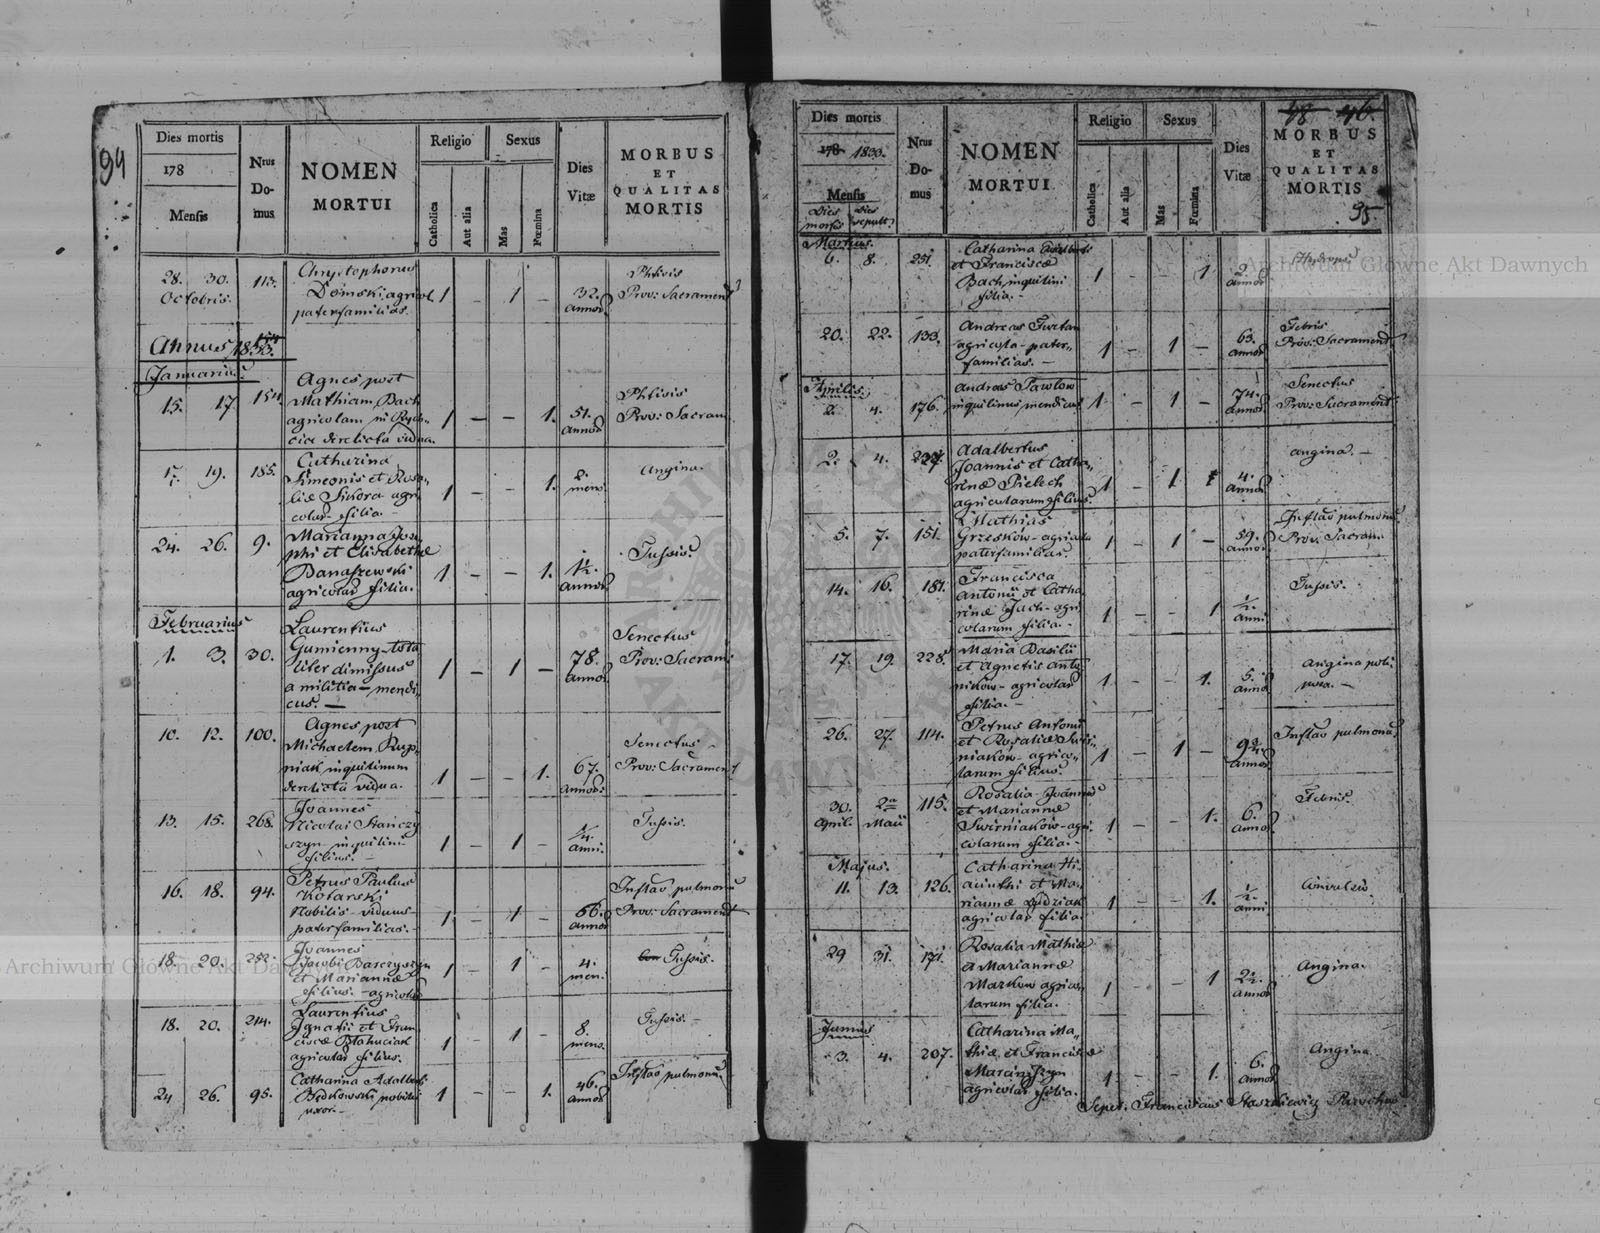 94
Dies mortis
178
Mensis
Nrus
Do-
mus
NOMEN
MORTUI
Religio
Catholica
Aut alia
Sexus
Mas
Fœmina
Dies
Vitæ
MORBUS
ET
QUALITAS
MORTIS
28. 30. 113.
Octobris.
Chrystophorus
Domski agricol.
paterfamilias.
1 – 1 –
32.
annor
Phtisis
Prov: Sacrament
Annus 1833.
Januarius.
15. 17. 154.
Agnes post
Mathiam Bach
agricolam in
derelicta vidua.
1 – – 1.
51.
annor
Phtisis
Prov: Sacram.
17. 19. 185.
Catharina
Simeonis et Rosa-
liæ Sikora agri
colar. filia.
1 – – 1.
2.
mens.
Angina.
24. 26. 9.
Marianna Jose
phi et Elisabethæ
Banaszewski
agricolar filia.
1 – – 1.
1½.
annor
Tussis.
Februarius
1. 3. 30.
Laurentius
Gumienny
liter dimissus
a militia – mendi
cus. –
1 – 1 –
78.
annor
Senectus
Prov: Sacram:
10. 12. 100.
Agnes post
Michaelem Kup-
niak inquilinum
derelicta vidua.
1 – – 1.
67.
annor.
Senectus
Prov: Sacrament
13. 15. 268.
Joannes
Nicolai Stańczy
szyn inquilini
filius. –
1 – 1 –
¼.
anni.
Tussis.
16. 18. 94.
Petrus Paulus
Kotarski
Nobilis – viduus –
paterfamilias. –
1 – 1 –
66.
annor
Inflao pulmonu
Prov: Sacrament
18. 20. 252.
Joannes
Jacobi Barczyszyn
et Mariannæ
filius. – agricolar
1 – 1 –
4.
men.
Tussis.
18. 20. 214.
Laurentius
Ignatii et Fran
ciscæ
agricolar filius.
1 1 –
8.
mens.
Tussis. –
24 26. 95.
Catharina Adalberti
Będkowski nobilis
uxor. –
1 – – 1.
46.
annor
Inflao pulmonu.
Dies mortis
178 1833.
Mensis
Dies
mortis
Dies
sepult.
Nrus
Do-
mus
NOMEN
MORTUI
Religio
Catholica
Aut alia
Sexus
Mas
Fœmina
Dies
Vitæ
48 46.
MORBUS
ET
QUALITAS
MORTIS
95.
Martius.
6. 8. 251.
Catharina Adalberti
et Franciscæ
Bach inquilini
filia. –
1 – – 1.
2.
annor
Hydrops
20. 22. 133.
Andreas
agricola – pater-
familias. –
1 – 1 –
63.
annor
Febris
Prov: Sacrament
Aprilis.
2. 4. 176.
Andreas Pawlow
inquilinus mendicus
1 – 1 –
74.
annor
Senectus
Prov: Sacrament
2. 4.
Adalbertus
Joannis et Catha-
rinæ Pielech
agricolarum filius.
1 – 1
4.
annor
Angina. –
5. 7. 151.
Mathias
Grzeskow – agricola
paterfamilias.
1 – 1 –
59.
annor
Inflao pulmonu
Prov. Sacram.
14. 16. 181.
Francisca
Antonii et Catha
rinæ Jach – agri
colarum filia. –
1 – – 1
½.
anni
Tussis.
17. 19. 228.
Maria Basilii
et Agnetis Anto
nikow – agricolar
filia. –
1 – – 1.
5.
annor
Angina
26. 27. 114.
Petrus Antonii
et Rosaliæ Swir-
niakow – agrico-
larum filius.
1 – 1 –
annor
Inflao pulmonu
30. 2
April. Maii
115.
Rosalia Joannis
et Mariannæ
Swirniakow – agri
colarum filia. –
1 – – 1.
6.
annor
Febris.
Majus.
11. 13. 126.
Catharina Hi-
acinthi et Ma-
riannæ
agricolar filia.
1 – – 1.
½.
anni
29 31. 171.
Rosalia Mathiæ
et Mariannæ
Markow agrico-
larum filia.
1 – – 1
2½.
annor
Angina.
Junius
3. 4. 207.
Catharina Ma-
thiæ et Franciscæ
Marciniszyn
agricolar filia.
1 – – 1.
6.
annor
Angina
Franciscus Staszkiewicz Parochus
Archiwum Główne Akt Dawnych
Archiwum Główne Akt Dawnych